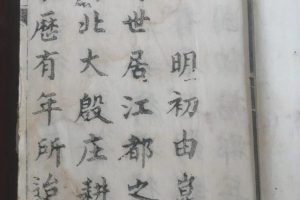 明初由
世居江都之
北大殷庄耕
歷有年所迨